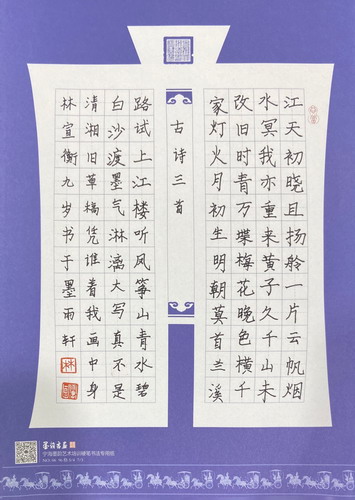 江天初晓且扬舲一片云帆烟
水冥我亦重来黄子久千山未
改旧时青万堞梅花晚色横千
家灯火月初生明朝莫首兰溪
古诗三首
路试上江楼听风筝山青水碧
白沙渡墨气淋漓大写真不是
清湘旧草稿凭谁着我画中身
林宣衡九岁书于墨雨轩
林
宁海墨韵艺术培训硬笔书法专用纸